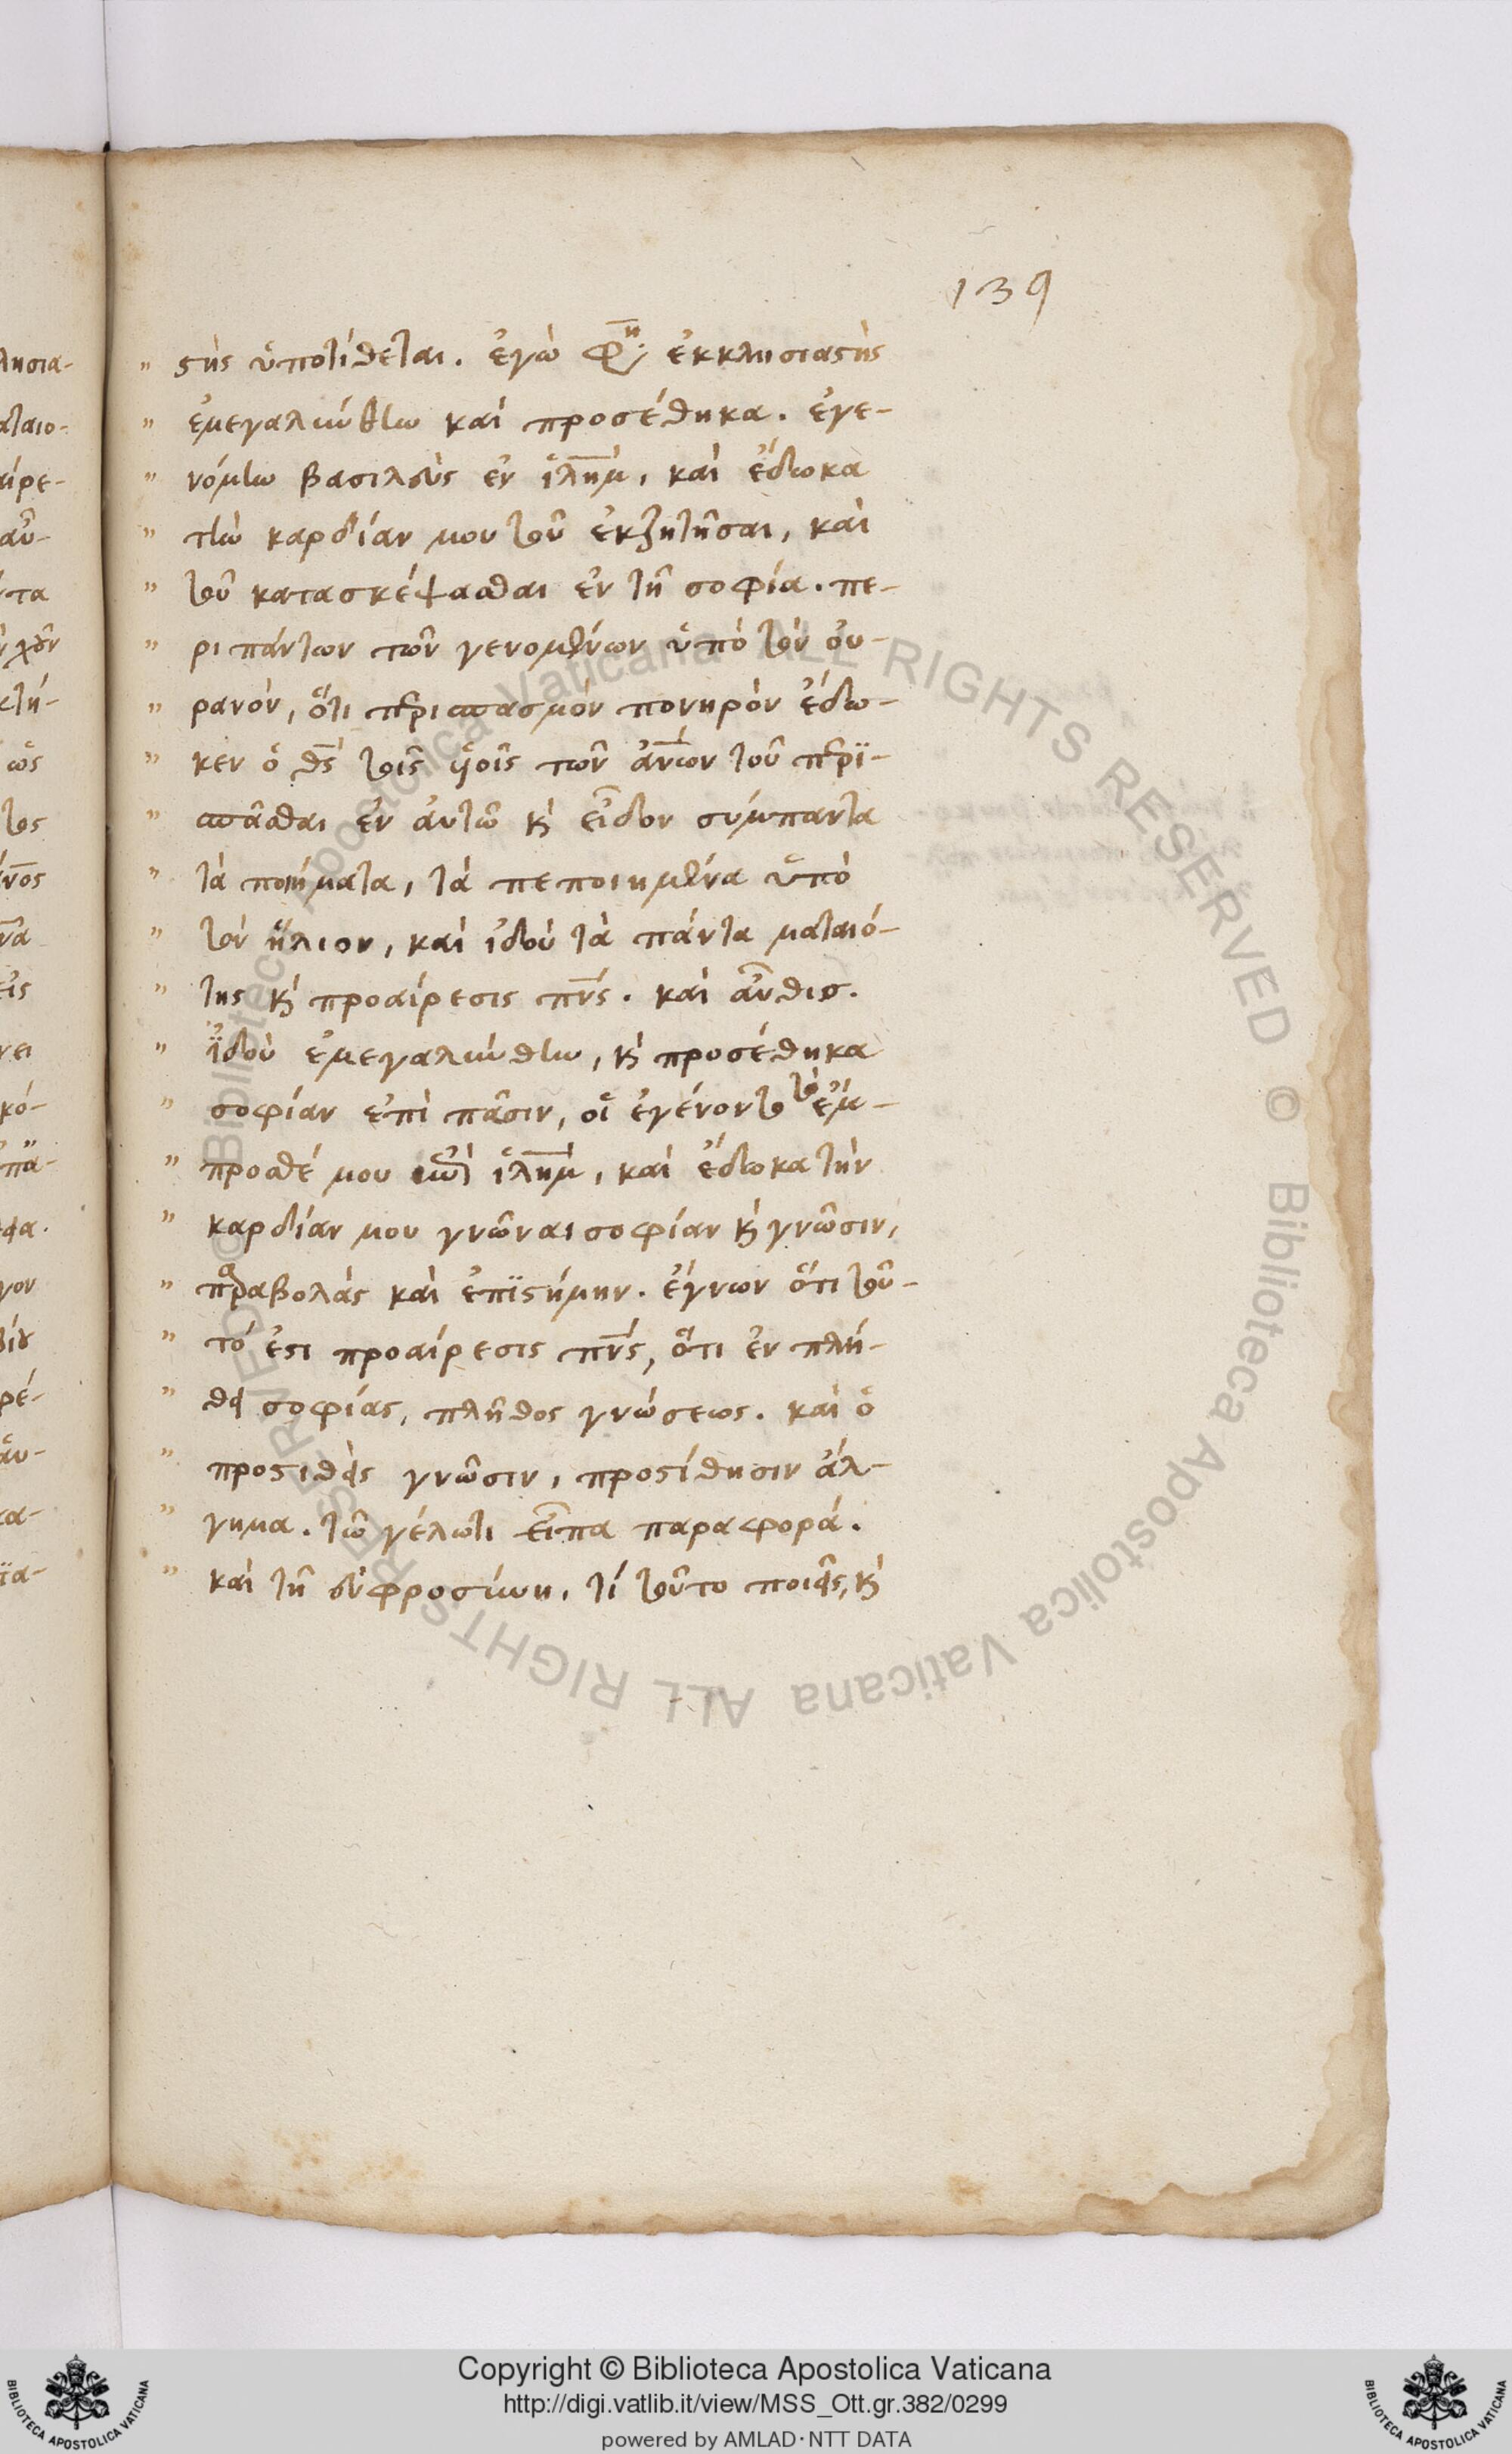 139
" στὴς ὑποτίθεται. ἐγὼ φη̅ ἐκκλησιαστὴς
" ἐμεγαλύνθην καὶ προσέθηκα. ἐγε-
" νόμην βασιλεὺς ἐν ἱλη̅μ, καὶ ἔδωκα
" τὴν καρδίαν μου τοῦ ἐκζητῆσαι, καὶ
" τοῦ κατασκέψασθαι ἐν τῇ σοφία. πε-
" ρι πάντων τῶν γενομένων ὑπὸ τὸν οὐ-
" ρανὸν, ὅτι περισπασμὸν πονηρὸν ἔδω-
" κεν ὁ θ̅ς τοῖς υἱοῖς τῶν ἀν̅ων τοῦ περϊ-
" σπᾶσθαι ἐν ἀυτῶ κ̀ εἶδον σύμπαντα
" τὰ ποιήματα, τὰ πεποιημένα ὑπὸ
" τὸν ἥλιον, καὶ ἰδοὺ τὰ πάντα ματαιό-
" της κ̀ προαίρεσις πν̅ς. καὶ αὖθισ.
" ἰ̈δοὺ ἐμεγαλύνθην, κ̀ προσέθηκα
" σοφίαν ἐπὶ πᾶσιν, οἳ ἐγένοντο ἐμ-
" προσθέ μου ἱλη̅μ, καὶ ἔδωκα τὴν
" καρδίαν μου γνῶναι σοφίαν κ̀ γνῶσιν,
" παραβολὰς καὶ ἐπϊστήμην. ἔγνων ὅτι τοῦ-
" τό ἐστι προαίρεσις πν̅ς, ὅτι ἐν πλή-
" θει σοφίας, πλῆθος γνώσεως. καὶ ὁ
" προστιθεὶς γνῶσιν, προστίθησιν ἄλ-
" γημα. τῶ γέλωτι εἶπα παραφορά.
" καὶ τῇ εὐφροσύνη, τί τοῦτο ποιεῖς, κ̀
λησια-
αταιο-
αίρε-
αὐ-
τα
κτή-
ὡς
τος
εἰς
νει
κό-
ρέ-
κα-
ϊα-
Copyright © Biblioteca Apostolica Vaticana
http://digi.vatlib.it/view/MSS_Ott.gr.382/0299
powered by AMLAD·NTT DATA
BIBLIOTECA APOSTOLICA VATICANA
BIBLIOTECA APOSTOLICA VATICANA
© Biblioteca Apostolica Vaticana ALL RIGHTS RESERVED © Biblioteca Apostolica Vaticana ALL RIGHTS RESERVED